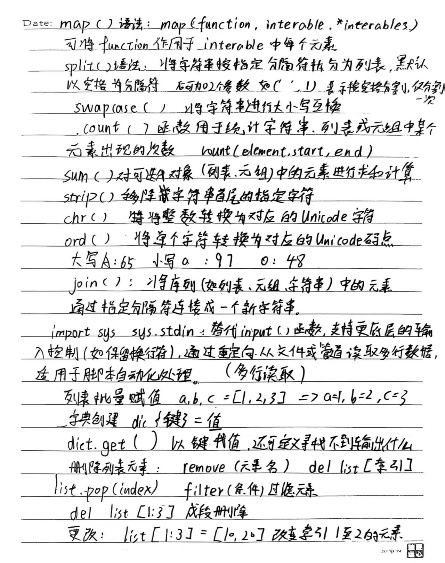 Date: map ( ) 语法: map (function, interable, *interables)
可将 function 作用于 interable 中每个元素
split() 语法: 将字符串按指定分隔符拆分为列表, 默认
以空格为分隔符 还可加2个参数 如(' ', 1) 表示按空格分割, 仅分割一次
swapcase ( ) 将字符串进行大小写互换
.count ( ) 函数用于统计字符串、列表或元组中某个
元素出现的次数 count (element, start, end)
sum ( ) 对可迭代对象 (列表、元组) 中的元素进行求和计算
strip() 移除字符串首尾的指定字符
chr ( ) 将整数转换为对应的 Unicode 字符
ord ( ) 将单个字符转换为对应的 Unicode 码点
大写A: 65 小写a : 97 0: 48
join ( ) : 将序列 (如列表、元组、字符串) 中的元素
通过指定分隔符连接成一个新字符串。
import sys sys.stdin: 替代 input ( ) 函数, 支持更底层的输
入控制 (如保留换行符), 通过重定向从文件或管道读取多行数据,
适用于脚本自动化处理。 (多行读取)
列表批量赋值 a, b, c = [1, 2, 3] => a=1, b=2, c=3
字典创建 dic {键} = 值
dict.get ( ) 以键找值, 还可定义寻找不到输出什么
删除列表元素: remove (元素名) del list [索引]
list.pop (index) filter (条件) 过滤元素
del list [1:3] 成段删除
更改: list [1:3] = [10, 20] 改变索引1至2的元素